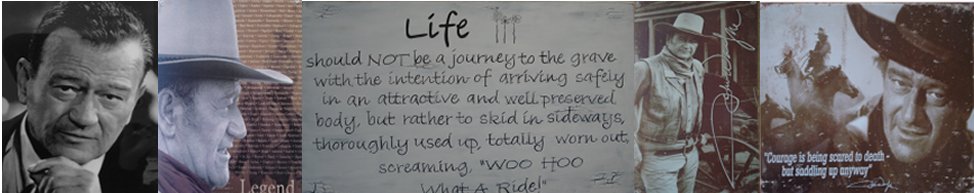 Legend
Life
should NOT be a journey to the grave
with the intention of arriving safely
in an attractive and well preserved
body, but rather to skid in sideways,
thoroughly used up, totally worn out,
screaming, "WOO HOO
What A Ride!"
"Courage is being scared to death -
but saddling up anyway"